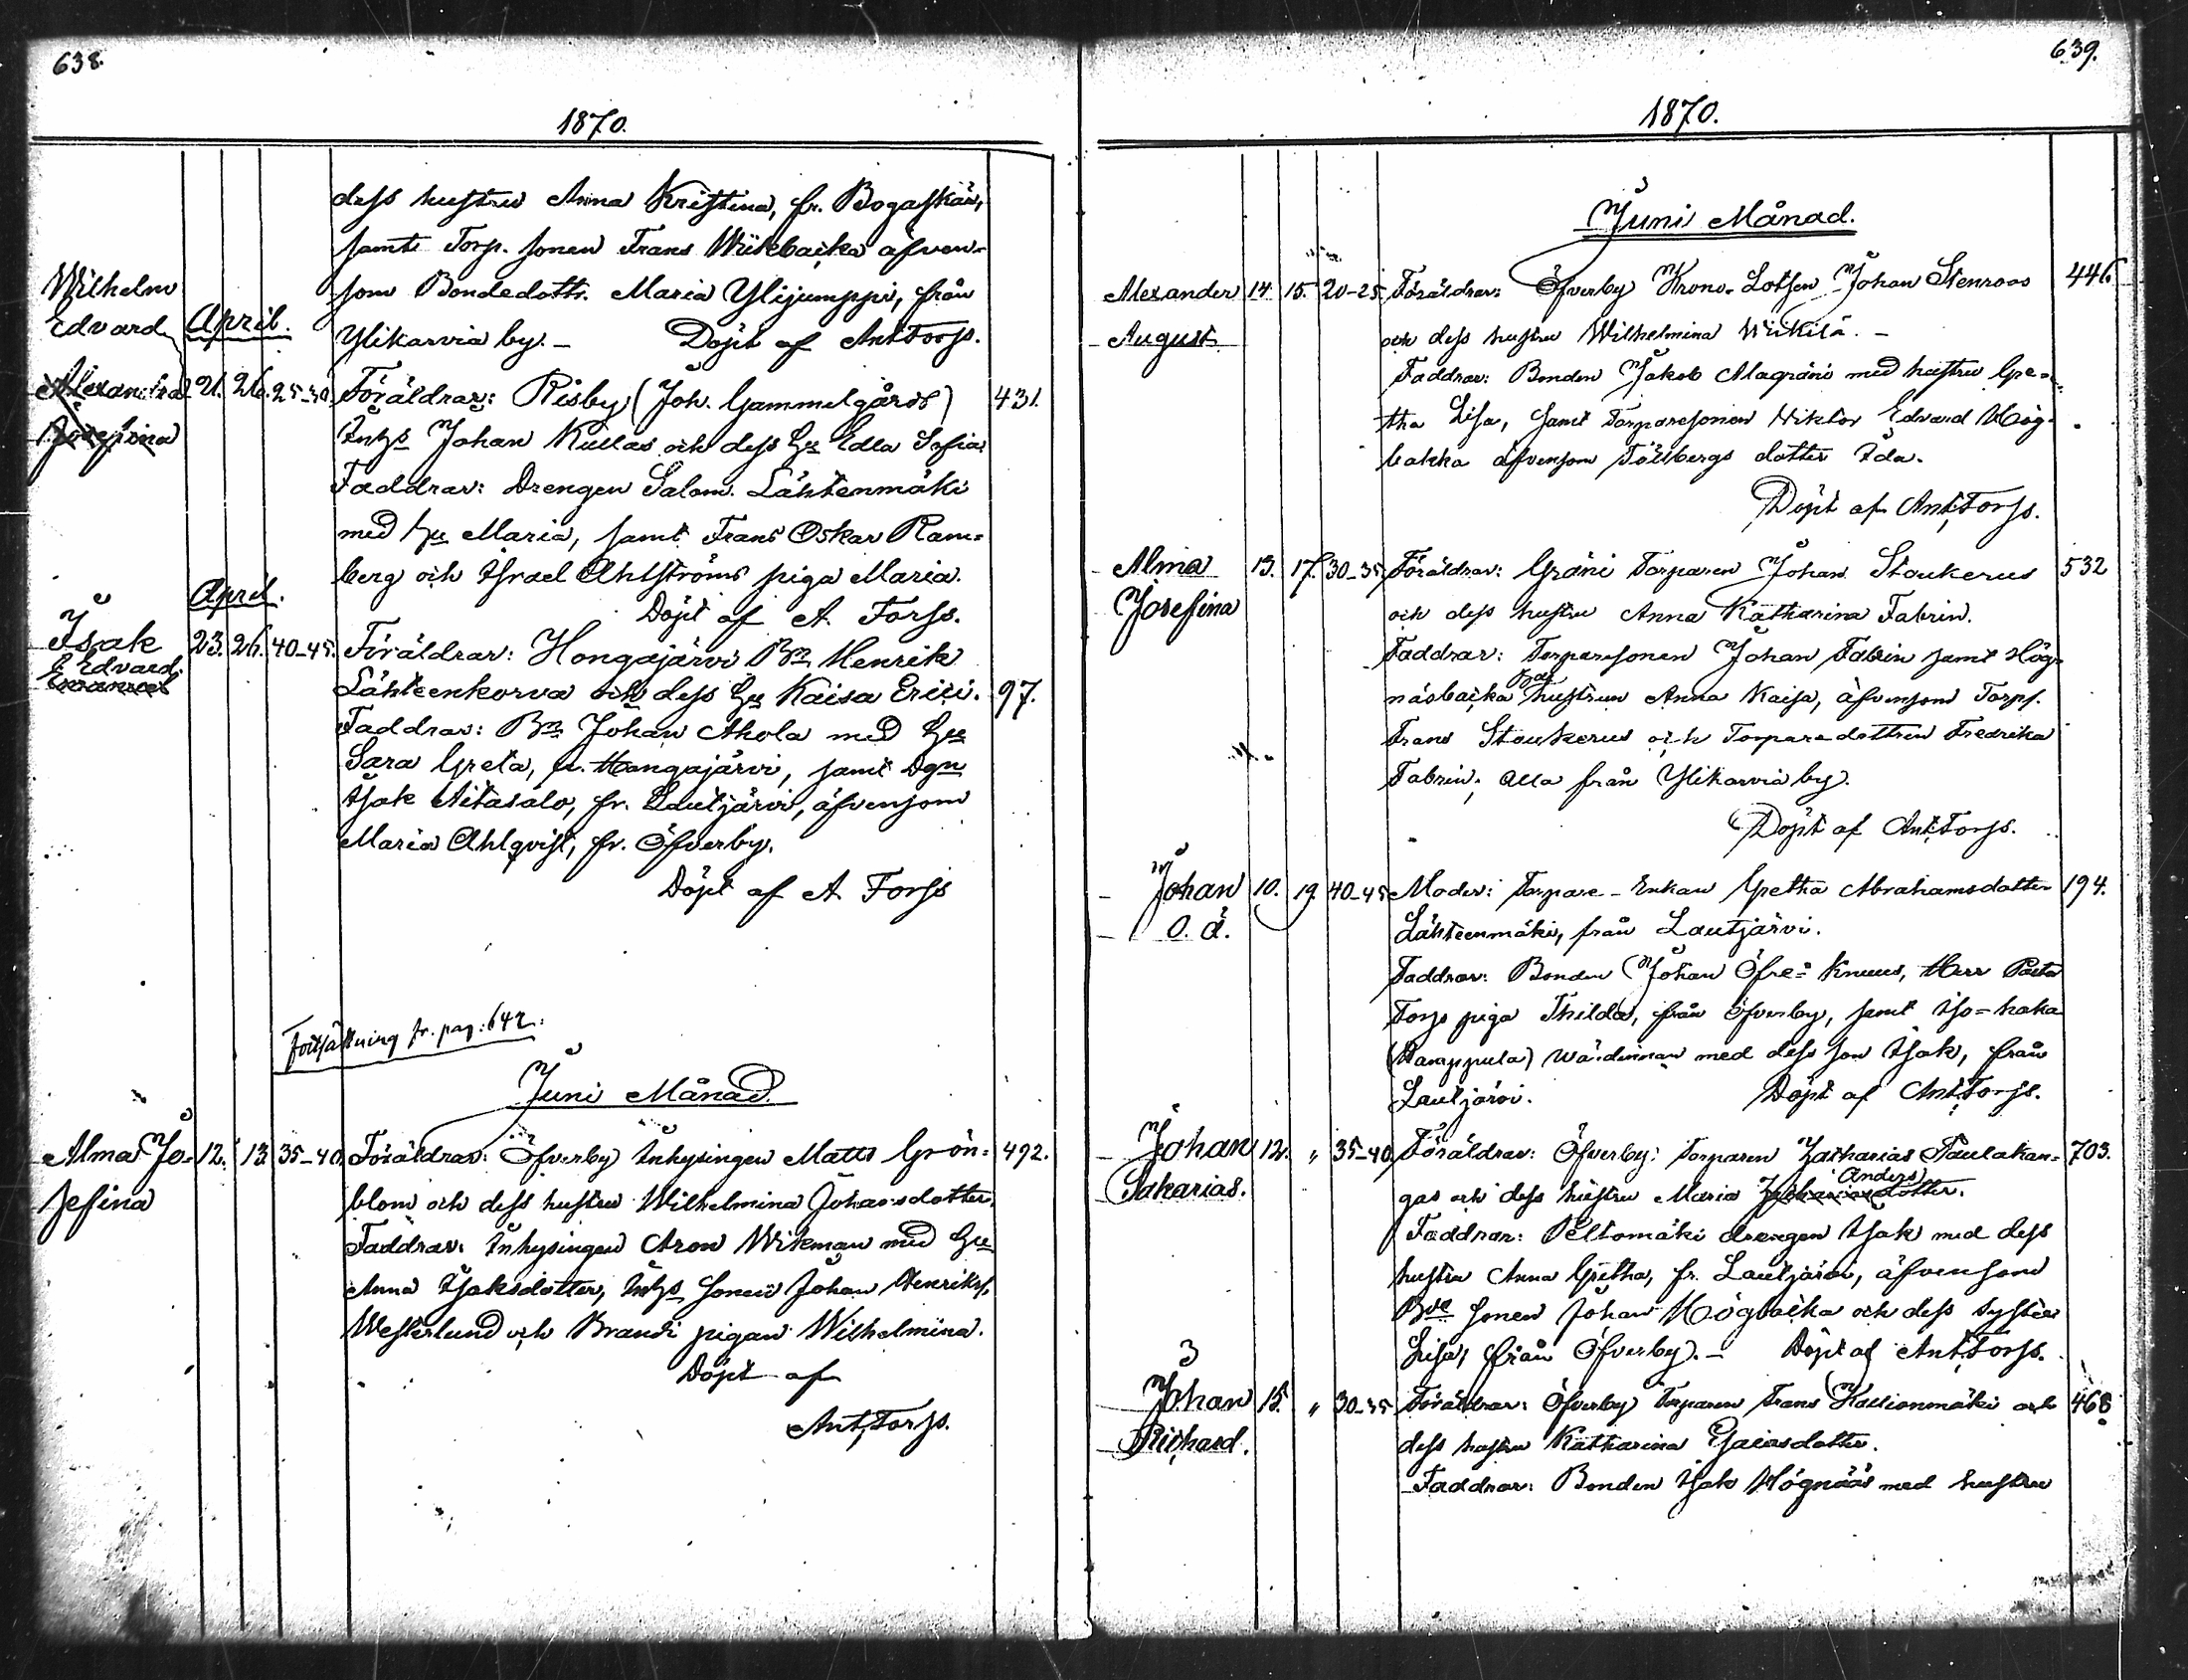 638.
1870.
dess hustru Anna Kristina, fr. Bogaskär,
samt Torp. sonen Frans Wiikbacka äfven-
som Bondedottr. Maria Ylijumppi, från
Ylikarvia by. — Döpt af Ant. Forss.
Wilhelm
Edvard
April.
Alexandra 21. 26. 25-30 Föräldrar: Risby (Joh. Gammelgårds) 431.
Josefina
Inhs Johan Kullas och dess Hu Edla Sofia
Faddrar: Drengen Salom. Lähtenmäki
med Hu Maria, samt Frans Oskar Ram-
berg och Israel Ahlströms piga Maria.
Döpt af A. Forss.
April.
Isak 23. 26. 40-45. Föräldrar: Hongajärvi Bn Henrik
Edvard
Lähteenkorva och dess Hu Kaisa Erici. 97.
Faddrar: Bn Johan Ahola med Hu
Sara Greta, fr. Hongajärvi, samt Dgn
Isak Aitasalo, fr. Lautjärvi, äfvensom
Maria Ahlqvist, fr. Öfverby.
Döpt af A. Forss
Fortsättning fr. pag: 642.
Juni Månad.
Alma Jo- 12. 13. 35-40. Föräldrar: Öfverby Inhysingen Matts Grön- 492.
sefina
blom och dess hustru Wilhelmina Johansdotter.
Faddrar: Inhysingen Aron Wikman med Hu
Anna Isaksdotter, Inhs sonen Johan Henrikss.
Westerlund och Brandi pigan Wilhelmina.
Döpt af
Ant. Forss.
639.
1870.
Juni Månad.
Alexander 14. 15. 20-25 Föräldrar: Öfverby Krono-Lotsen Johan Stenroos 446
August
och dess hustru Wilhelmina Wiikilä. —
Faddrar: Bonden Jakob Alagräni med hustru Gre-
tha Lisa, samt Torparesonen Wiktor Edvard Hög-
backa äfvensom Töllbergs dotter Ida.
Döpt af Ant. Forss.
Alma 13. 17. 30-35 Föräldrar: Gräni Torparen Johan Stoukerus 532
Josefina
och dess hustru Anna Katharina Fabrin.
Faddrar: Torparesonen Johan Fabrin samt Hög-
näsbacka hustrun Anna Kaisa, äfvensom Torps.
Frans Stoukerus och Torparedottren Fredrika
Fabrin, alla från Ylikarvia by.
Döpt af Ant. Forss.
Johan 10. 19. 40-45 Moder: Torpare-Enkan Gretha Abrahamsdotter 194.
O. ä.
Lähteenmäki, från Lautjärvi.
Faddrar: Bonden Johan Öfre-Knuus, Herr Pastor
Forss piga Thilda, från Öfverby, samt Iso-haka
(Hamppula) wärdinnan med dess son Isak, från
Lautjärvi. Döpt af Ant. Forss.
Johan 12. " 35-40 Föräldrar: Öfverby: Torparen Zacharias Paulakan- 703.
Sakarias.
gas och dess hustru Maria Anders dotter.
Faddrar: Peltomäki drengen Isak med dess
hustru Anna Gretha, fr. Lautjärvi, äfvensom
Bde sonen Johan Högbacka och dess syster
Lisa, från Öfverby. — Döpt af Ant. Forss.
Johan 15. " 30-35 Föräldrar: Öfverby Torparen Frans Kallionmäki och 468
Richard.
dess hustru Katharina Esaiasdotter.
Faddrar: Bonden Isak Högnäs med hustru